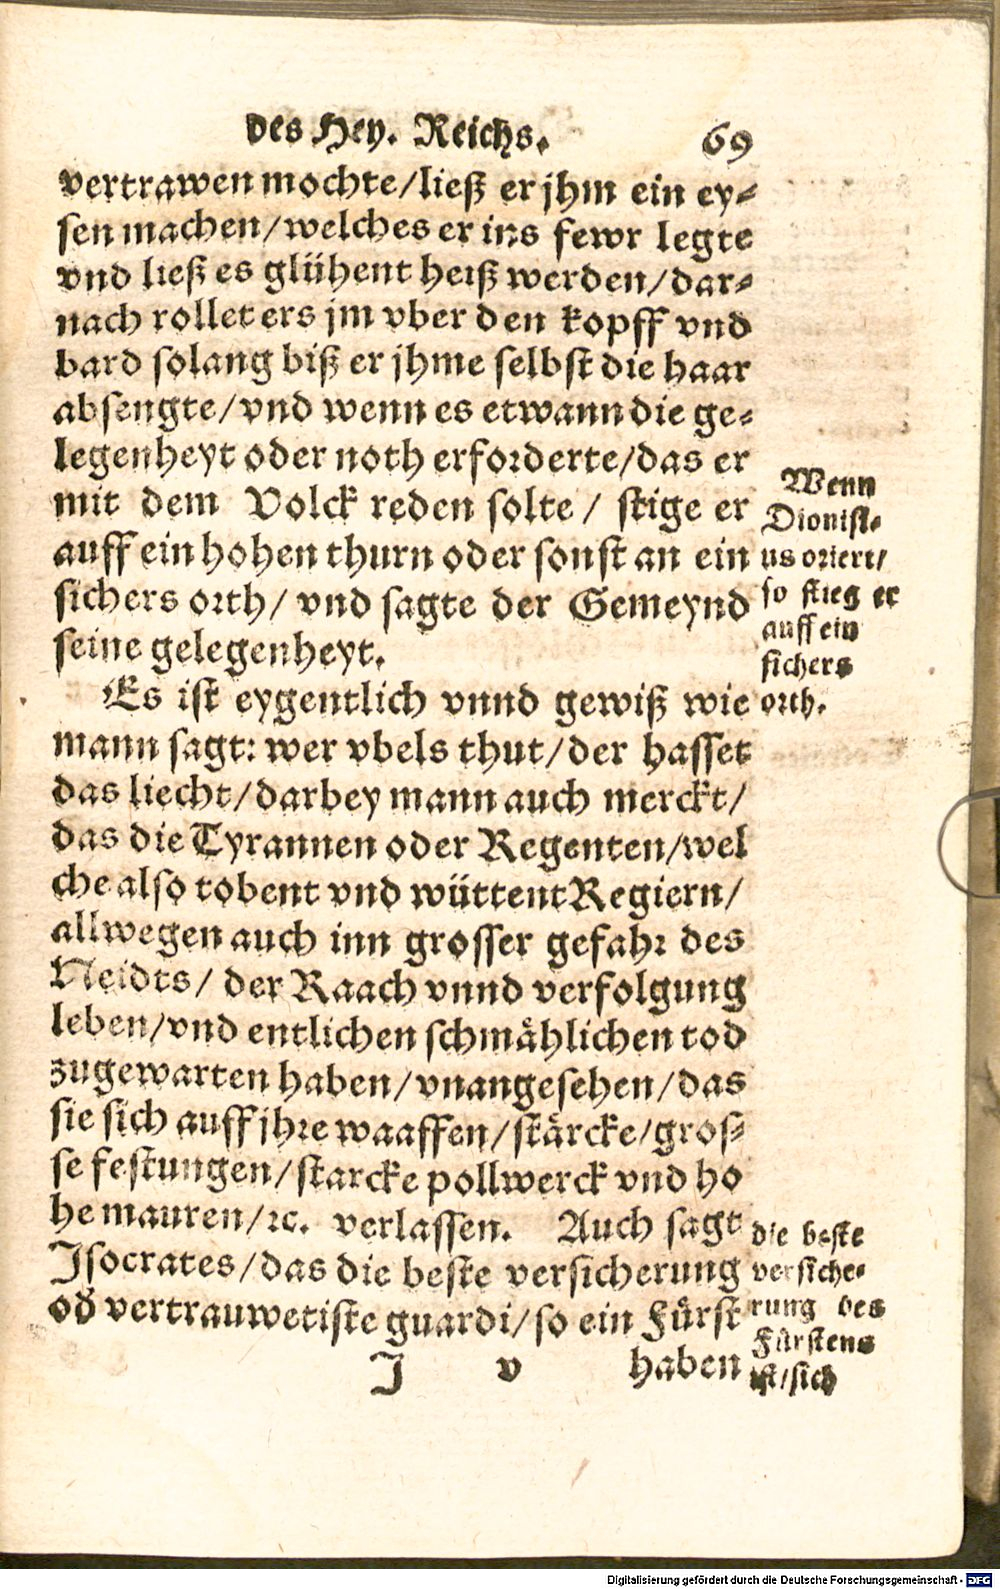 des Hey. Reichs. 69
vertrawen mochte/ließ er jhm ein ey-
sen machen/welches er ins fewr legte
vnd ließ es glühent heiß werden/dar-
nach rollet ers jm vber den kopff vnd
bard solang biß er jhme selbst die haar
absengte/vnd wenn es etwann die ge-
legenheyt oder noth erforderte/das er
mit dem Volck reden solte/ stige er
auff ein hohen thurn oder sonst an ein
sichers orth/ vnd sagte der Gemeynd
seine gelegenheyt.
Wenn
Dionisi-
us oriert/
so stieg er
auff ein
sichers
orth.
Es ist eygentlich vnnd gewiß wie
mann sagt: wer vbels thut/der hasset
das liecht/darbey mann auch merckt/
das die Tyrannen oder Regenten/wel
che also tobent vnd wüttent Regiern/
allwegen auch inn grosser gefahr des
Neidts/ der Raach vnnd verfolgung
leben/vnd entlichen schmählichen tod
zugewarten haben/vnangesehen/das
sie sich auff jhre waaffen/stärcke/gros-
se festungen/starcke pollwerck vnd ho
he mauren/ꝛc. verlassen. Auch sagt
Isocrates/das die beste versicherung
od̕ vertrauwetiste guardi/so ein Fürst
die beste
versiche-
rung des
Fürstens
ist/sich
J v haben
Digitalisierung gefördert durch die Deutsche Forschungsgemeinschaft - DFG